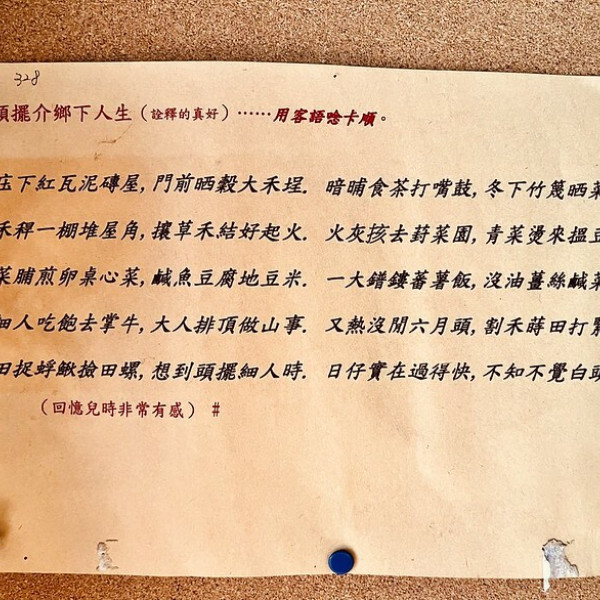 328
頭擺介鄉下人生（詮釋的真好）……用客語唸卡順。
庄下紅瓦泥磚屋, 門前晒穀大禾埕. 暗晡食茶打嘴鼓, 冬下竹篾晒菜
禾稈一棚堆屋角, 攘草禾結好起火. 火灰拔去葑菜園, 青菜燙來搵豆
菜脯煎卵桌心菜, 鹹魚豆腐地豆米. 一大鐥鏤蕃薯飯, 沒油薑絲鹹菜
細人吃飽去掌牛, 大人排頂做山事. 又熱沒閒六月頭, 割禾蒔田打
田捉蜉鰍撿田螺, 想到頭擺細人時. 日仔實在過得快, 不知不覺白頭
（回憶兒時非常有感） #